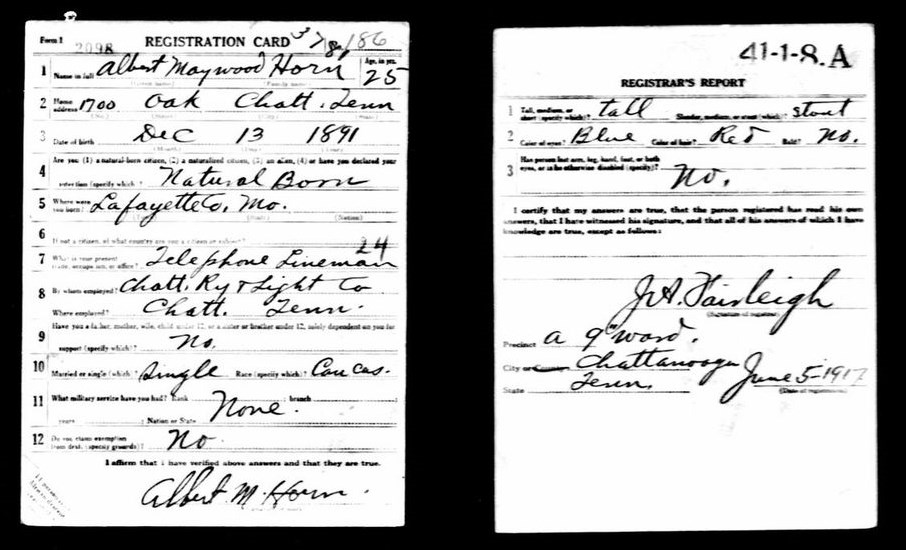 Form 1 2098 REGISTRATION CARD 37 8/186
1 Name in full Albert Maywood Horn Age, in yrs. 25
(Given name) (Family name)
2 Home address 1700 Oak Chatt. Tenn
(No.) (Street) (City) (State)
3 Date of birth Dec 13 1891
(Month) (Day) (Year)
4 Are you (1) a natural-born citizen, (2) a naturalized citizen, (3) an alien, (4) or have you declared your
intention (specify which)? Natural Born
5 Where were you born? Lafayette Co, Mo.
(Town) (State) (Nation)
6 If not a citizen, of what country are you a citizen or subject?
24
7 What is your present trade, occupation, or office? Telephone Lineman
8 By whom employed? Chatt. Ry & Light Co
Where employed? Chatt. Tenn.
9 Have you a father, mother, wife, child under 12, or a sister or brother under 12, solely dependent on you for
support (specify which)? No.
10 Married or single (which)? Single Race (specify which)? Caucas.
11 What military service have you had? Rank ; branch
years ; Nation or State None.
12 Do you claim exemption from draft (specify grounds)? No
I affirm that I have verified above answers and that they are true.
Albert M. Horn.
41-1-8. A
REGISTRAR'S REPORT
1 Tall, medium, or short (specify which)? tall Slender, medium, or stout (which)? Stout
2 Color of eyes? Blue Color of hair? Red Bald? No.
3 Has person lost arm, leg, hand, foot, or both
eyes, or is he otherwise disabled (specify)? No.
I certify that my answers are true, that the person registered has read his own
answers, that I have witnessed his signature, and that all of his answers of which I have
knowledge are true, except as follows:
J.A. Fairleigh
(Signature of registrar)
Precinct A 9" Ward.
City or County Chattanooga
State Tenn. June 5-1917
(Date of registration)